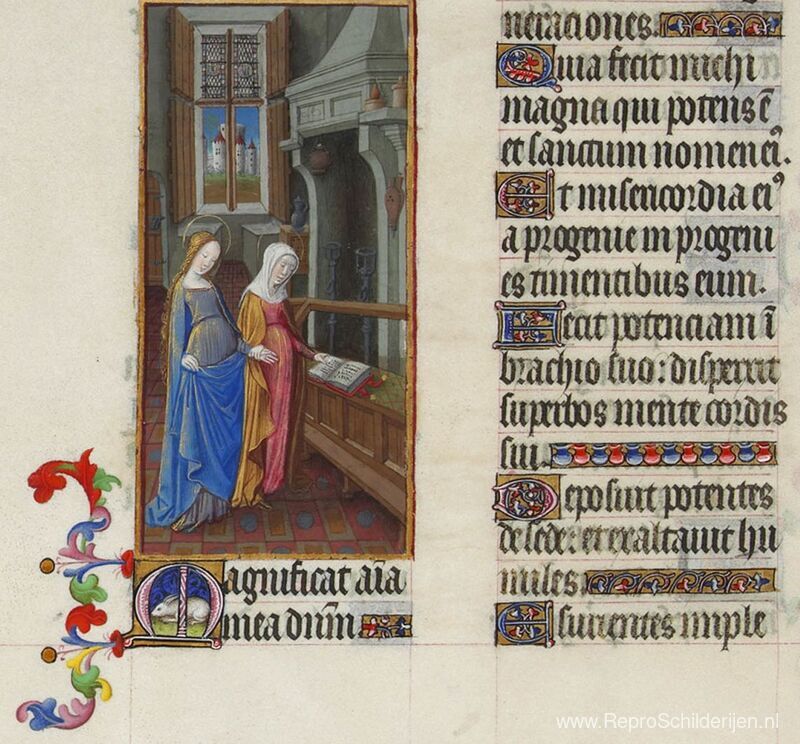 Magnificat aīa
mea dn̄m
neraciones.
Quia fecit michi
magna qui potens ē
et sanctum nomen eiꝰ.
Et misericordia eiꝰ
a progenie in progeni
es timentibus eum.
Fecit potenciam ī
brachio suo: disperxit
superbos mente cordis
sui.
Deposuit potentes
de sede: et exaltavit hu
miles.
Esurientes imple
www.ReproSchilderijen.nl